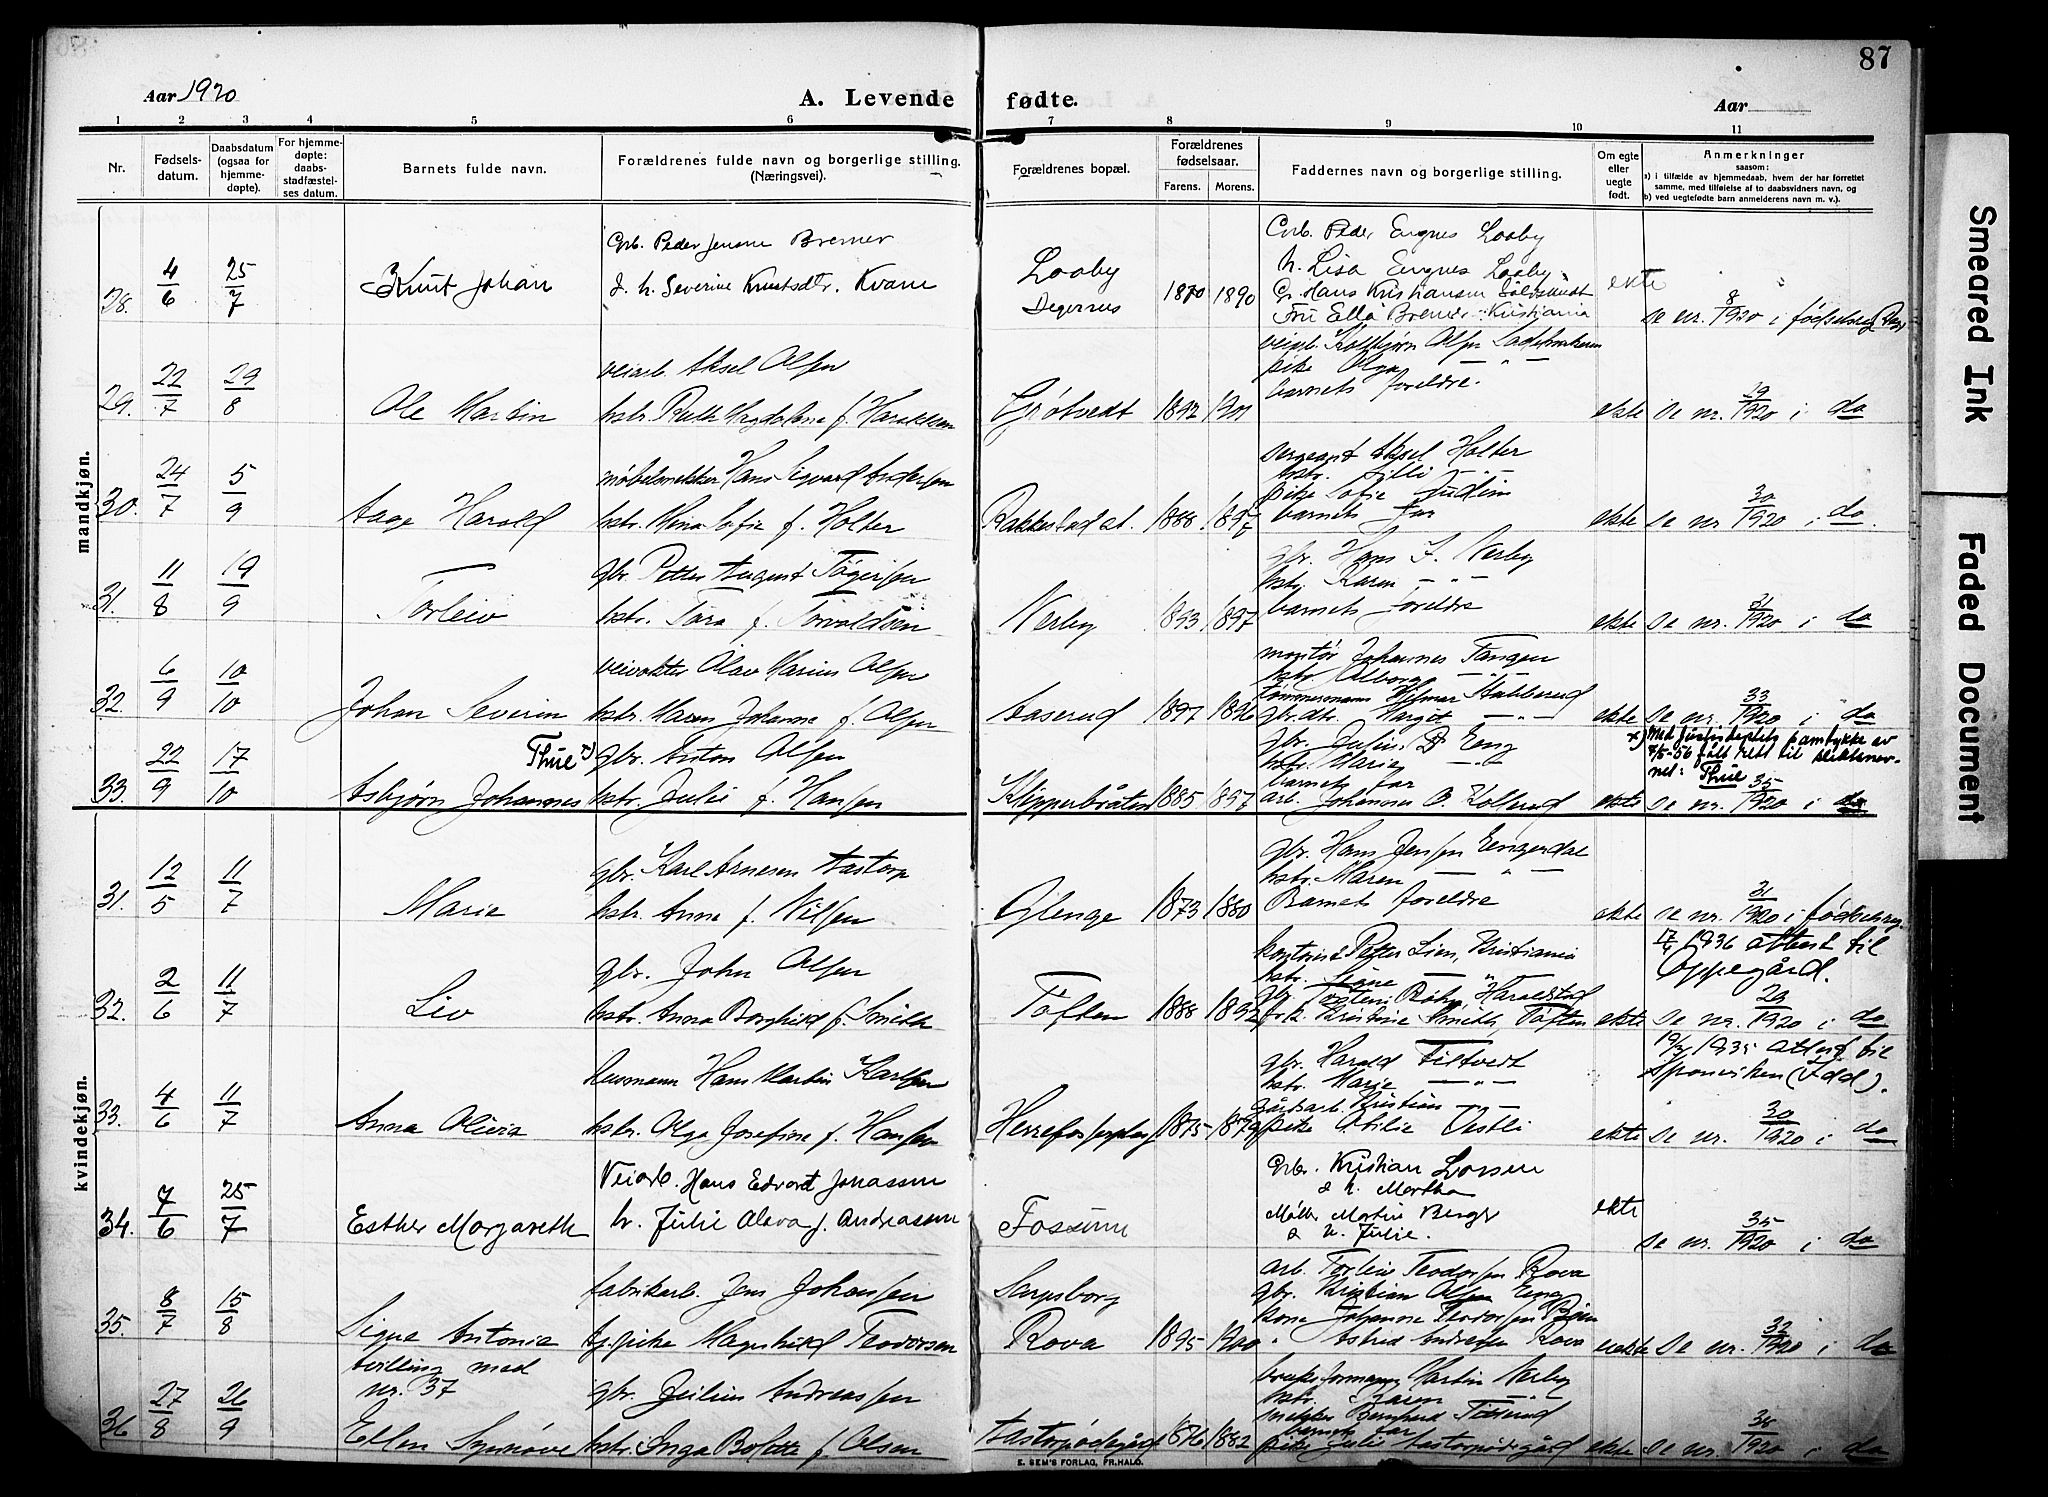 87
Aar 1920
A. Levende fødte.
Aar
1 2 3 4 5 6 7 8 9 10 11
Nr.
Fødselsdatum.
Daabsdatum (ogsaa for hjemmedøpte).
For hjemmedøpte: daabsstadfæstelses datum.
Barnets fulde navn.
Forældrenes fulde navn og borgerlige stilling. (Næringsvei).
Forældrenes bopæl.
Forældrenes fødselsaar.
Farens. Morens.
Faddernes navn og borgerlige stilling.
Om egte eller uegte født.
Anmerkninger
saasom:
a) i tilfælde av hjemmedaab, hvem der har forrettet
samme, med tilføielse af to daabsvidners navn, og
b) ved uegtefødte barn anmelderens navn m. v.).
mandkjøn.
28. 4/6 25/7 Knut Johan
Grb. Peder Jensen Bremer
d. h. Severine Knutsdtr. Kvam
Looby
Degernes
1870 1890
Grb. Peder Engnes Looby
h. Lisa Engnes Looby
Gr. Hans Kristiansen
Fru Ella Bremer Kristiania
ekte
se nr. 8/1920 i fødselsreg.
29. 22/7 29/8 Ole Martin
veiarb. Aksel Olsen
hstr. Ruth Magdalene f. Haraldsen
Grøtvedt 1892 1901
veiarb. Kolbjørn Olsen
pike Olga — " —
barnets foreldre.
ekte se nr. 29/1920 i do
30. 24/7 5/9 Aage Harald
møbelsnekker Hans Sigvard Andersen
hstr. Mina Sofie f. Holter
Rakkestad st. 1888 1897
sergeant Aksel Holter
hstr. Lilli — " —
pike Sofie
barnets far
ekte se nr 30/1920 i do
31. 11/8 19/9 Torleiv
gbr. Petter August Tøgersen
hstr. Tora f. Torvaldsen
Nerby 1893 1897
gbr. Hans J. Nerby
hstr. Karen — " —
barnets foreldre
ekte se nr. /1920 i do
32. 6/9 10/10 Johan Severin
veivokter Olav Marius Olsen
hstr. Maren Johanne f. Olsen
Aaserud 1897 1896
montør Johannes Tangen
hstr. Alborg — " —
tømmermann Hilmar Stubberud
gbr.dtr. Margot — " —
ekte se nr. 33/1920 i do
33. 22/9 17/10 Asbjørn Johannes Thue x)
gbr. Anton Olsen
hstr. Julie f. Hansen
Klipperbråten 1885 1897
gbr. Julius D. Eng
hstr. Marie — " —
barnets far
arb. Johannes O. Kollerud
ekte
x) Med justisdeptets samtykke av
7/5-56 fått rett til slektsnav-
net: Thue
se nr. 35/1920 i do
kvindekjøn.
31. 12/5 11/7 Marie
gbr. Karl Arnesen Aastorp
hstr. Anna f. Nilsen
Glenge 1873 1880
gbr. Hans Jensen Engerdal
hstr. Maren — " —
Barnets foreldre
ekte se nr. 31/1920 i fødselsreg.
32. 2/6 11/7 Liv
gbr. John Olsen
hstr. Anna Borghild f. Smith
Tøften 1888 1892
kontorist Petter Lien, Kristiania
hstr. Signe — " —
gbr. Haraldstad
frk. Kristine Smith, Tøften
ekte
17/4 1936 attest til
Oppegård.
se nr. 29/1920 i do
33. 4/6 11/7 Anna Olivia
Husmann Hans Martin Karlsen
hstr. Olga Josefine f. Hansen
1875 1879
gbr. Harald Tiltvedt
hstr. Marie — " —
gårdsarb. Kristian — " —
pike Otilie Vestli
ekte
1935 attest til
Sponviken (Idd).
se nr. 30/1920 i do
34. 7/6 25/7 Esther Margareth
Veiarb. Hans Edvart Jonassen
h. Julie Olava f. Andreassen
Fossum
Grb. Kristian Larsen
d. h. Martha
Møller Martin Berger
d. h. Julie.
ekte
se nr. 35/1920 i do
35. 8/7 15/8 Signe Antonie
fabrikarb. Jens Johansen
tj.pike Magnhild Teodorsen
Sarpsborg
Rova 1895 1900
arb. Torleiv Teodorsen Rova
gbr. Kristian Olsen Eng
kone Johanne Teodorsen
" Astrid Andresen Rova
uekte se nr. 32/1920 i do
tvilling med
nr. 37
36 27/8 26/9 Ellen Synnøve
gbr. Julius Andreassen
hstr. Inga Bolette f. Olsen
Aastorpødegård 1876 1882
bruksformann Martin Nerby
hstr. Karen — " —
snekker Bernhard
barnets far
pike Julie Aastorpødegård
ekte se nr. 38/1920 i do
E. SEM'S FORLAG, FR.HALD.
Smeared Ink
Faded Document